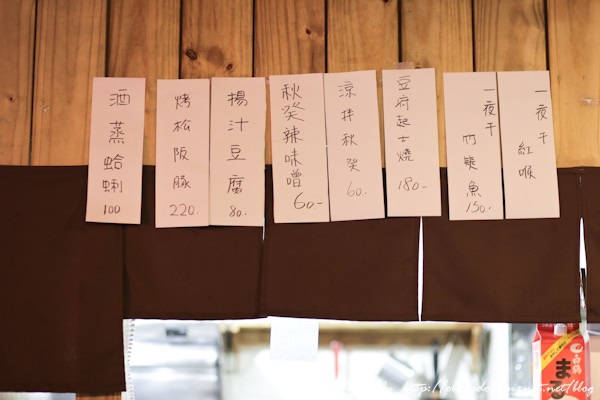 酒蒸蛤蜊
100
烤松阪豚
220.
揚汁豆腐
80.
秋葵辣味噌
60-
涼拌秋葵
60.
豆府起士燒
180-
一夜干
竹筴魚
150-
一夜干
紅喉
白鶴
まる